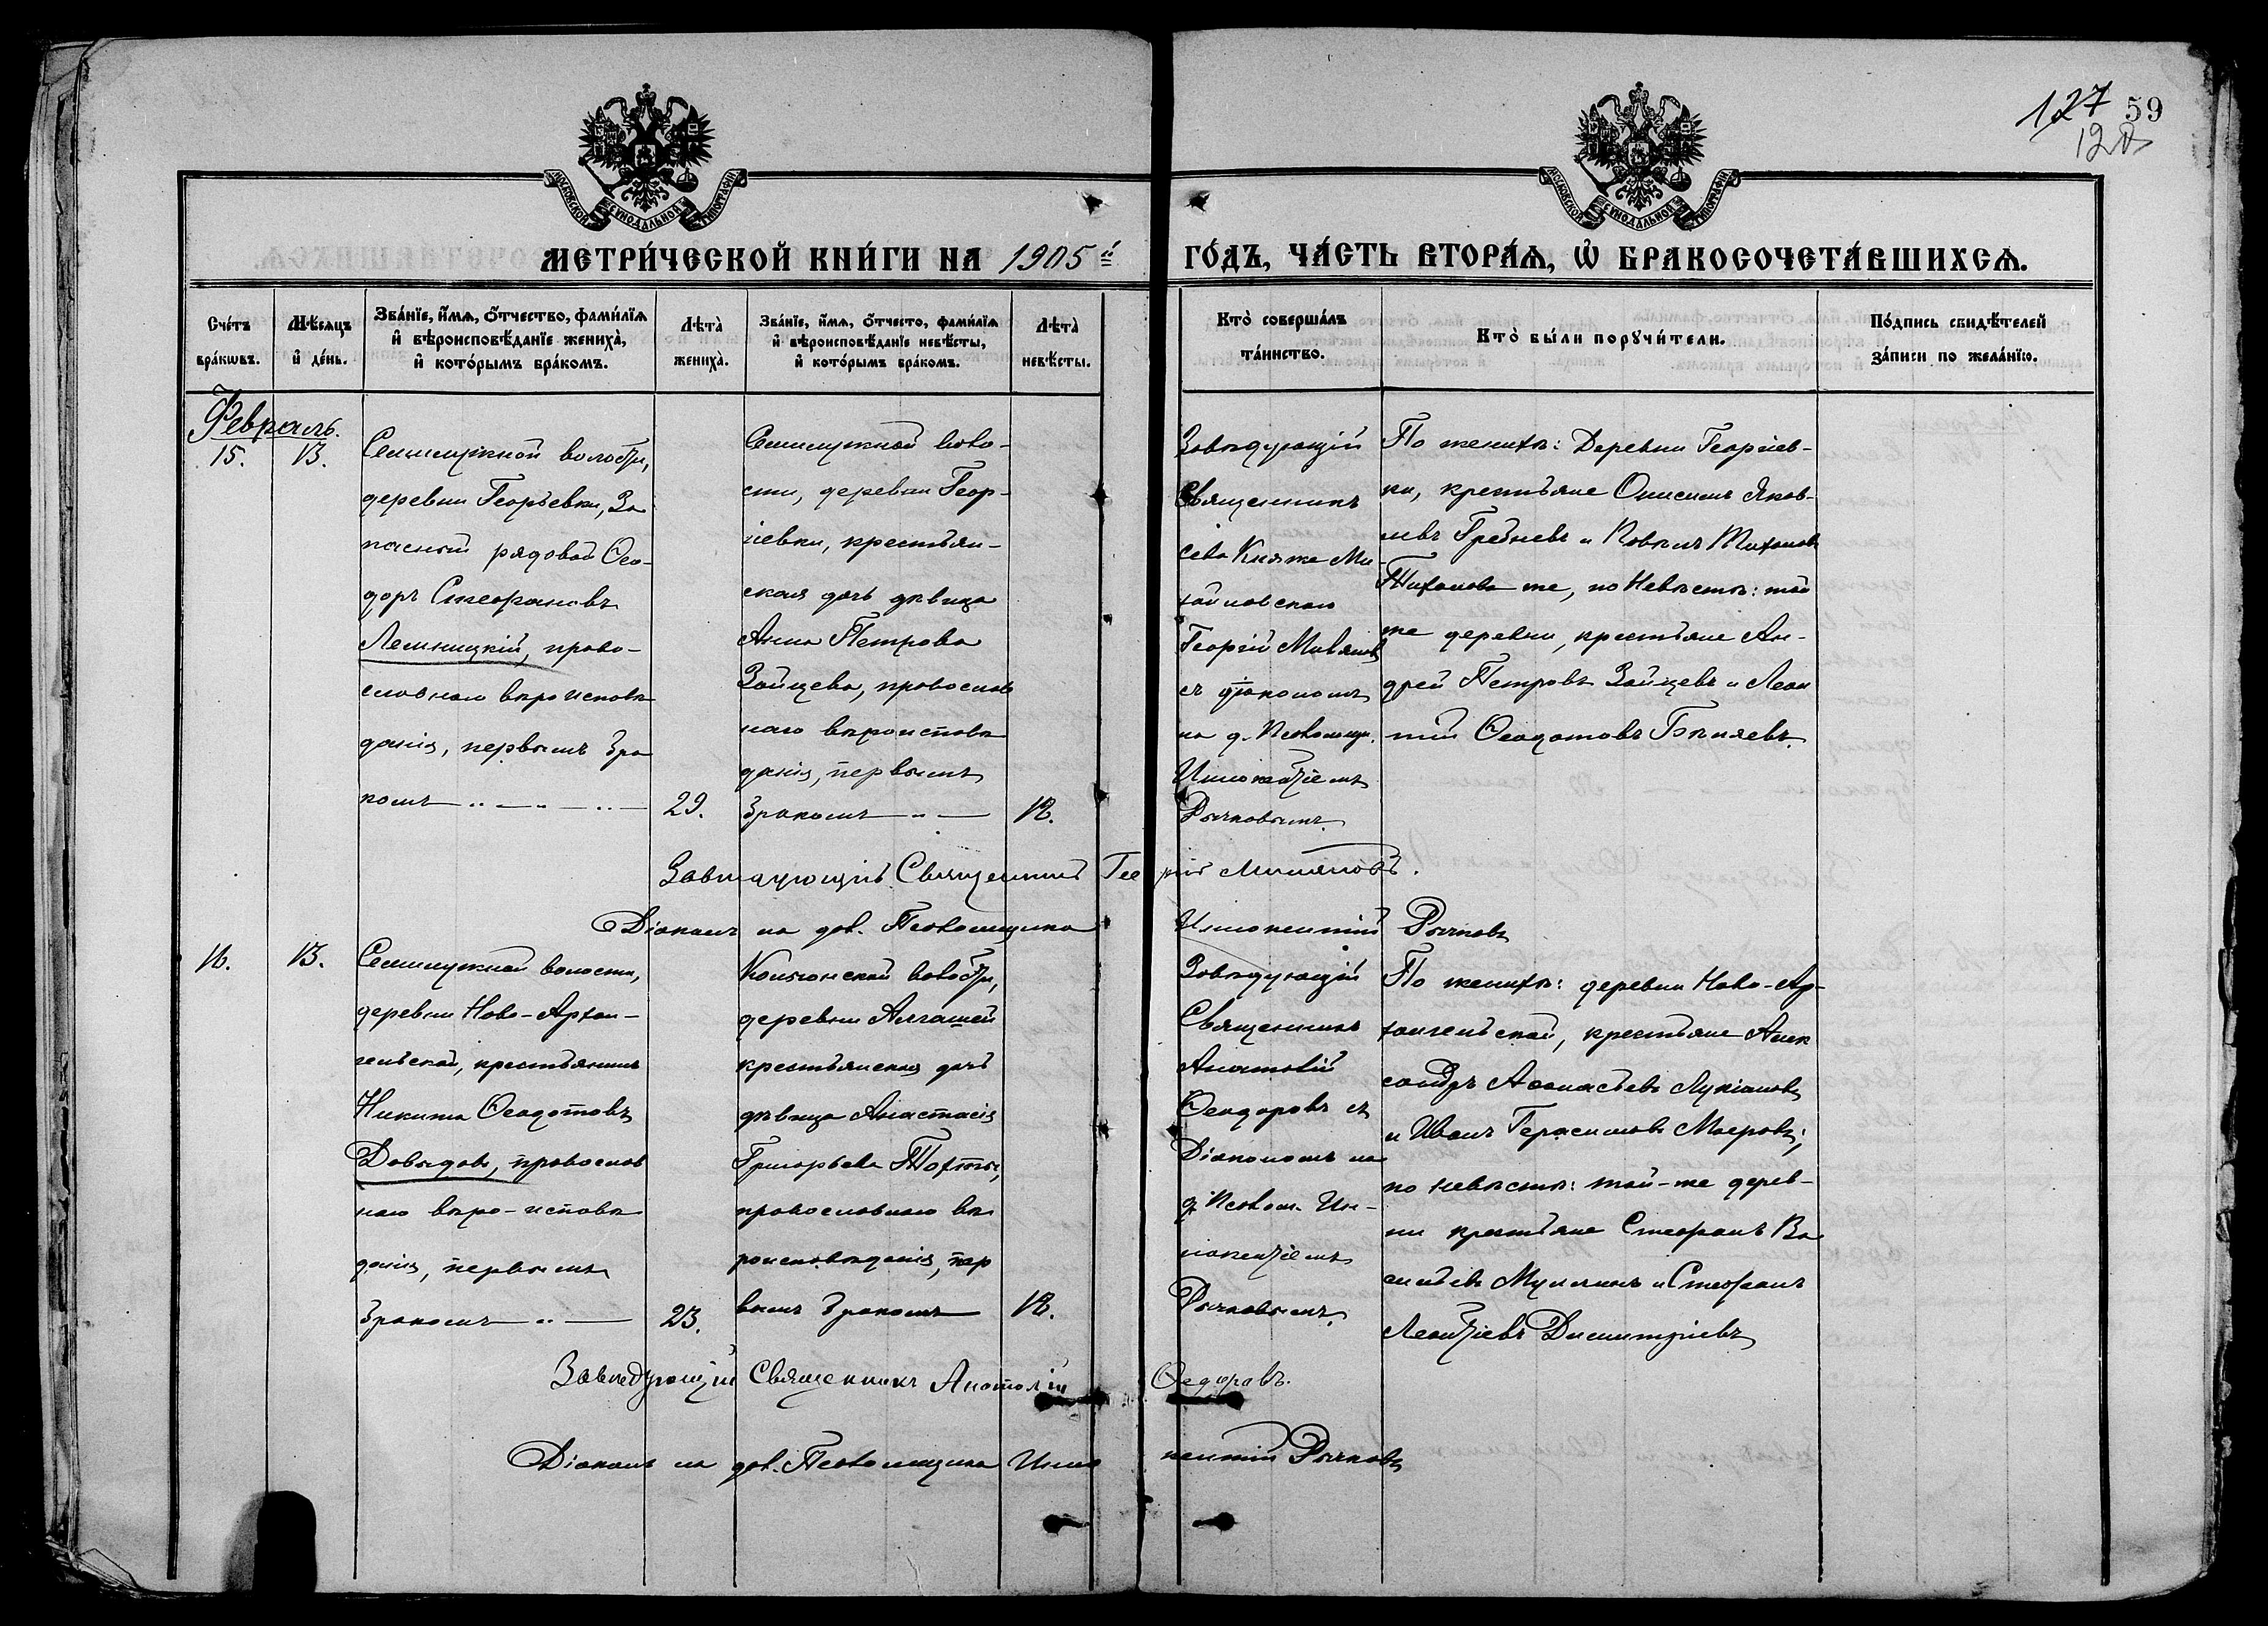 127 59
120
МОСКОВСКОЙ СѴНОДАЛЬНОЙ ТИПОГРАФІИ
МОСКОВСКОЙ СѴНОДАЛЬНОЙ ТИПОГРАФІИ
МЕТРИ́ЧЕСКОЙ КНИ́ГИ НА 1905й ГО́ДЪ, ЧА́СТЬ ВТОРА́Ѧ, Ѽ БРАКОСОЧЕТА́ВШИХСѦ.
Сче́тъ
бра́кѡвъ.
Мѣ́сѧцъ
и҆ де́нь.
Зва́нїе, и҆́мѧ, ѻ҆́тчество, фами́лїѧ
и҆ вѣроисповѣ́данїе жениха̀,
и҆ кото́рымъ бра́комъ.
Лѣта̀
жениха̀.
Зва́нїе, и҆́мѧ, ѻ҆́тчесто, фами́лїѧ
и҆ вѣроисповѣ́данїе невѣ́сты,
и҆ кото́рымъ бра́комъ.
Лѣта̀
невѣ́сты.
Кто̀ соверша́лъ
та́инство.
Кто̀ бы́ли порꙋчи́тели.
По́дпись свидѣ́телей
за́писи по жела́нїю.
Февраль.
15.
13.
Семилужной волости,
деревни Георгьевки, За
пасный рядовой Ѳео-
доръ Стефановъ
Лесницкій, право-
славнаго вѣроисповѣ
данія, первымъ бра
комъ
29.
Семилужной воло-
сти, деревни Геор-
гіевки, крестьян-
ская дочь дѣвица
Анна Петрова
Зайцева, православ
наго вѣроисповѣ
данія, первымъ
бракомъ
18.
Завѣдующій
Священникъ
села Княже Ми
хайловскаго
Георгій
съ діакономъ
на д. Псаломщ.
Иннокентіемъ
Рычковымъ.
По женихѣ: Деревни Георгіев-
ки, крестьяне Онисимъ Яков-
левъ Гребневъ и Тихонов
Тихонова же, по Невѣстѣ: той
же деревни, крестьяне Ан-
дрей Петровъ Зайцевъ и Леон
тій Ѳеодотовъ Бѣляевъ.
Завѣдующій Священникъ Георгій
Діаконъ на дол. Псаломщика Иннокентій Рычковъ
16.
13.
Семилужной волости,
деревни Ново-Архан-
гельской, крестьянинъ
Никита Ѳеодотовъ
Давыдовъ, православ
наго вѣро-исповѣ
данія, первымъ
бракомъ
23.
волости,
деревни
крестьянская дочь
дѣвица Анастасія
Григорьева
православнаго вѣ
роисповѣданія, пер
вымъ бракомъ
18.
Завѣдующій
Священникъ
Анатолій
Ѳеодоровъ съ
Діакономъ на
д. Псалом. Ин-
нокентіемъ
Рычковымъ.
По женихѣ: деревни Ново-Ар-
хангельской, крестьяне Алек
сандръ Аѳанасьевъ Лукіановъ
и Иванъ Герасимовъ
по невѣстѣ: той-же дерев-
ни крестьяне Стефанъ Ва
сильевъ и Стефанъ
Леонтіевъ Димитріевъ
Завѣдующій Священникъ Анатолій Ѳедоровъ.
Діаконъ на дол. Псаломщика Иннокентій Рычковъ